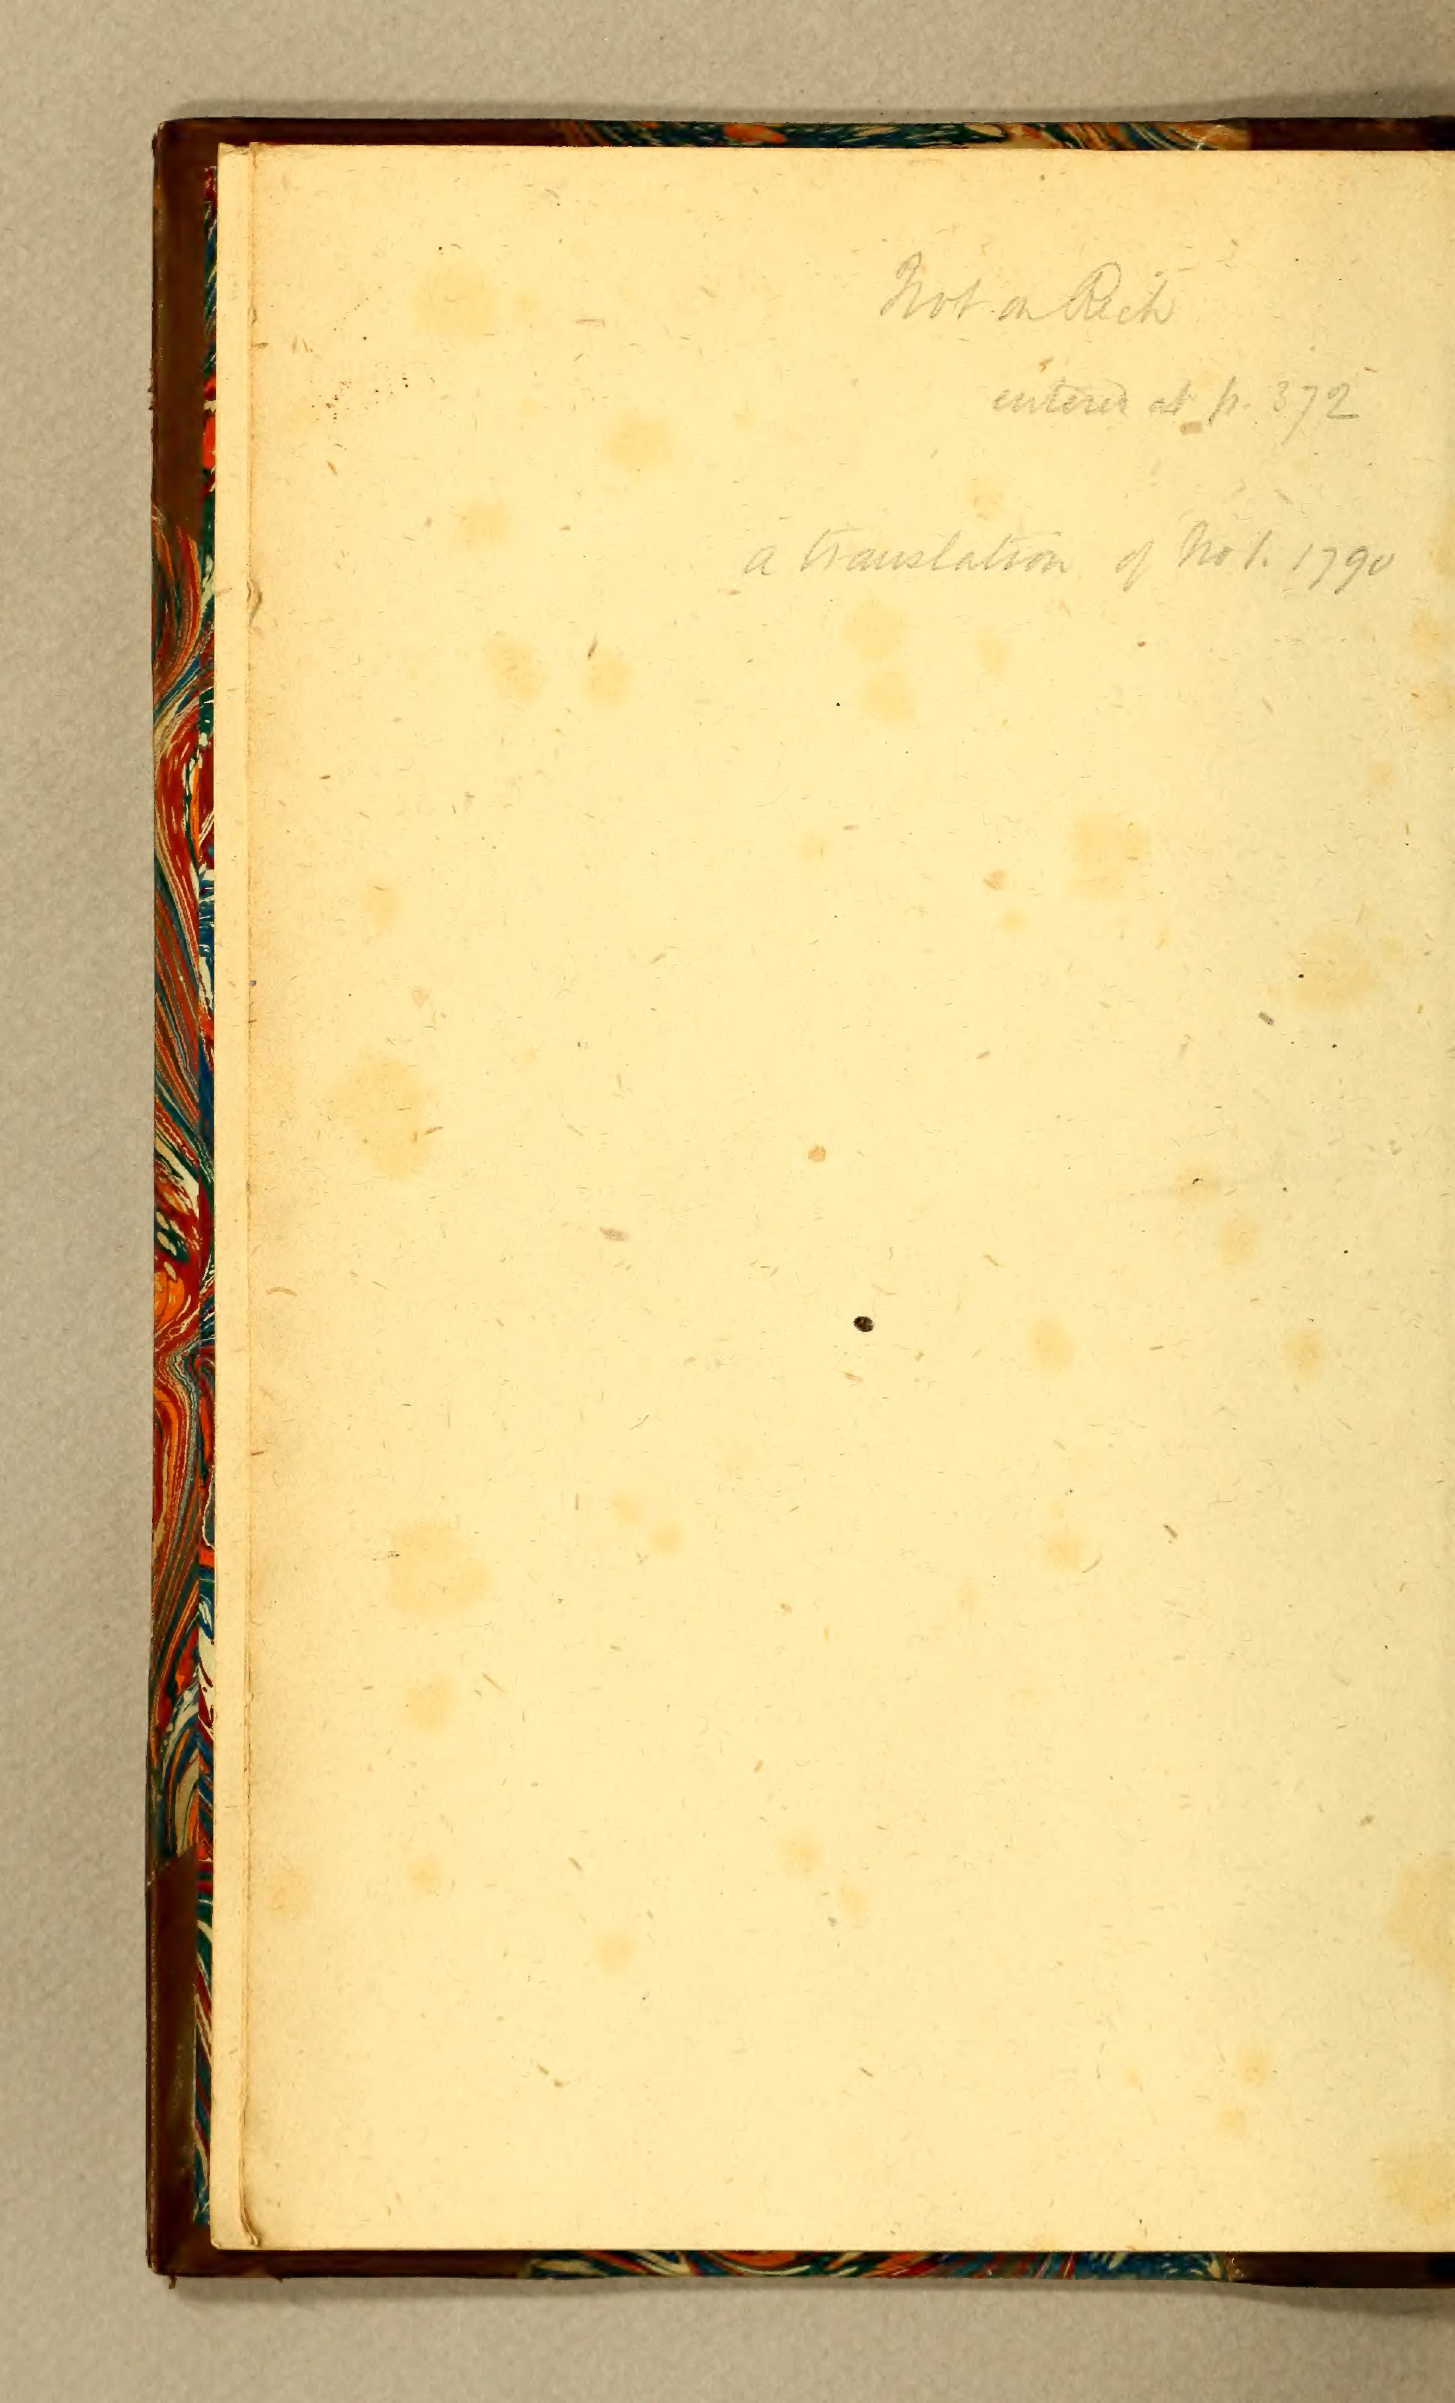 Not in Rich
entered at p. 372
a translation of No 1. 1790